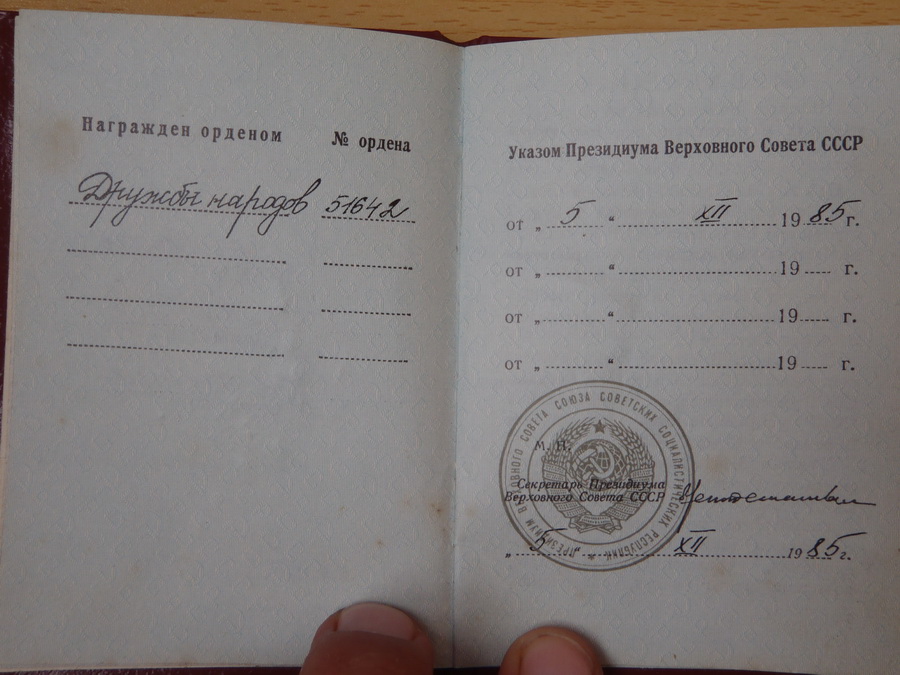 Награжден орденом № ордена
Дружбы народов 51642
Указом Президиума Верховного Совета СССР
от „ 5 “ XII 1985 г.
от „ “ 19 г.
от „ “ 19 г.
от „ “ 19 г.
ПРЕЗИДИУМ ВЕРХОВНОГО СОВЕТА СОЮЗА СОВЕТСКИХ СОЦИАЛИСТИЧЕСКИХ РЕСПУБЛИК
М. П.
Секретарь Президиума
Верховного Совета СССР
„ 5 “ XII 1985 г.